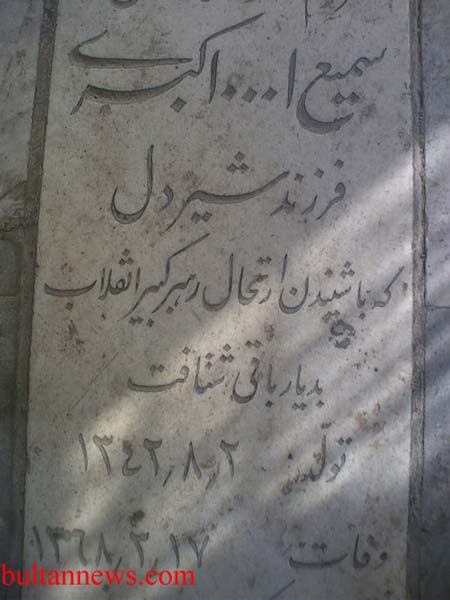 سمیع ا... اکبری
فرزند شیردل
که با شنیدن ارتحال رهبر کبیر انقلاب
بدیار باقی شتافت
تولد: ۱۳۴۲٫۸٫۲
وفات: ۱۳۶۸٫۳٫۱۷
bultannews.com